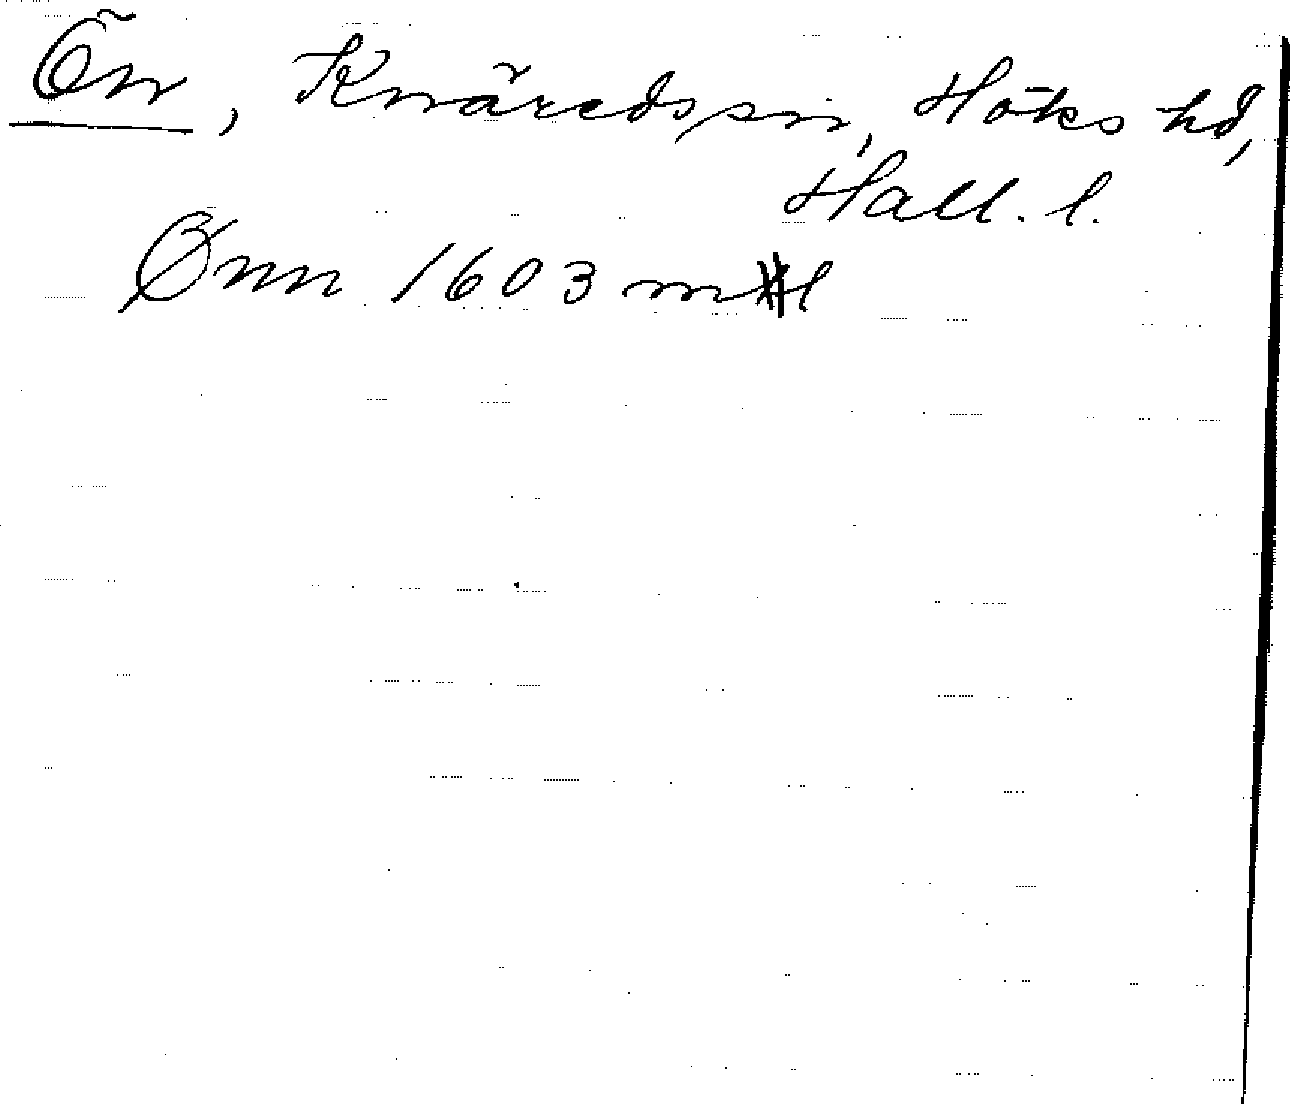 Ön, Knäredssn, Höks hd,
Hall. l.
Ønn 1603